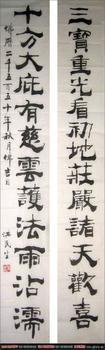 三寶重光看初地莊嚴諸天歡喜
十方大庇有慈雲護法雨沾濡